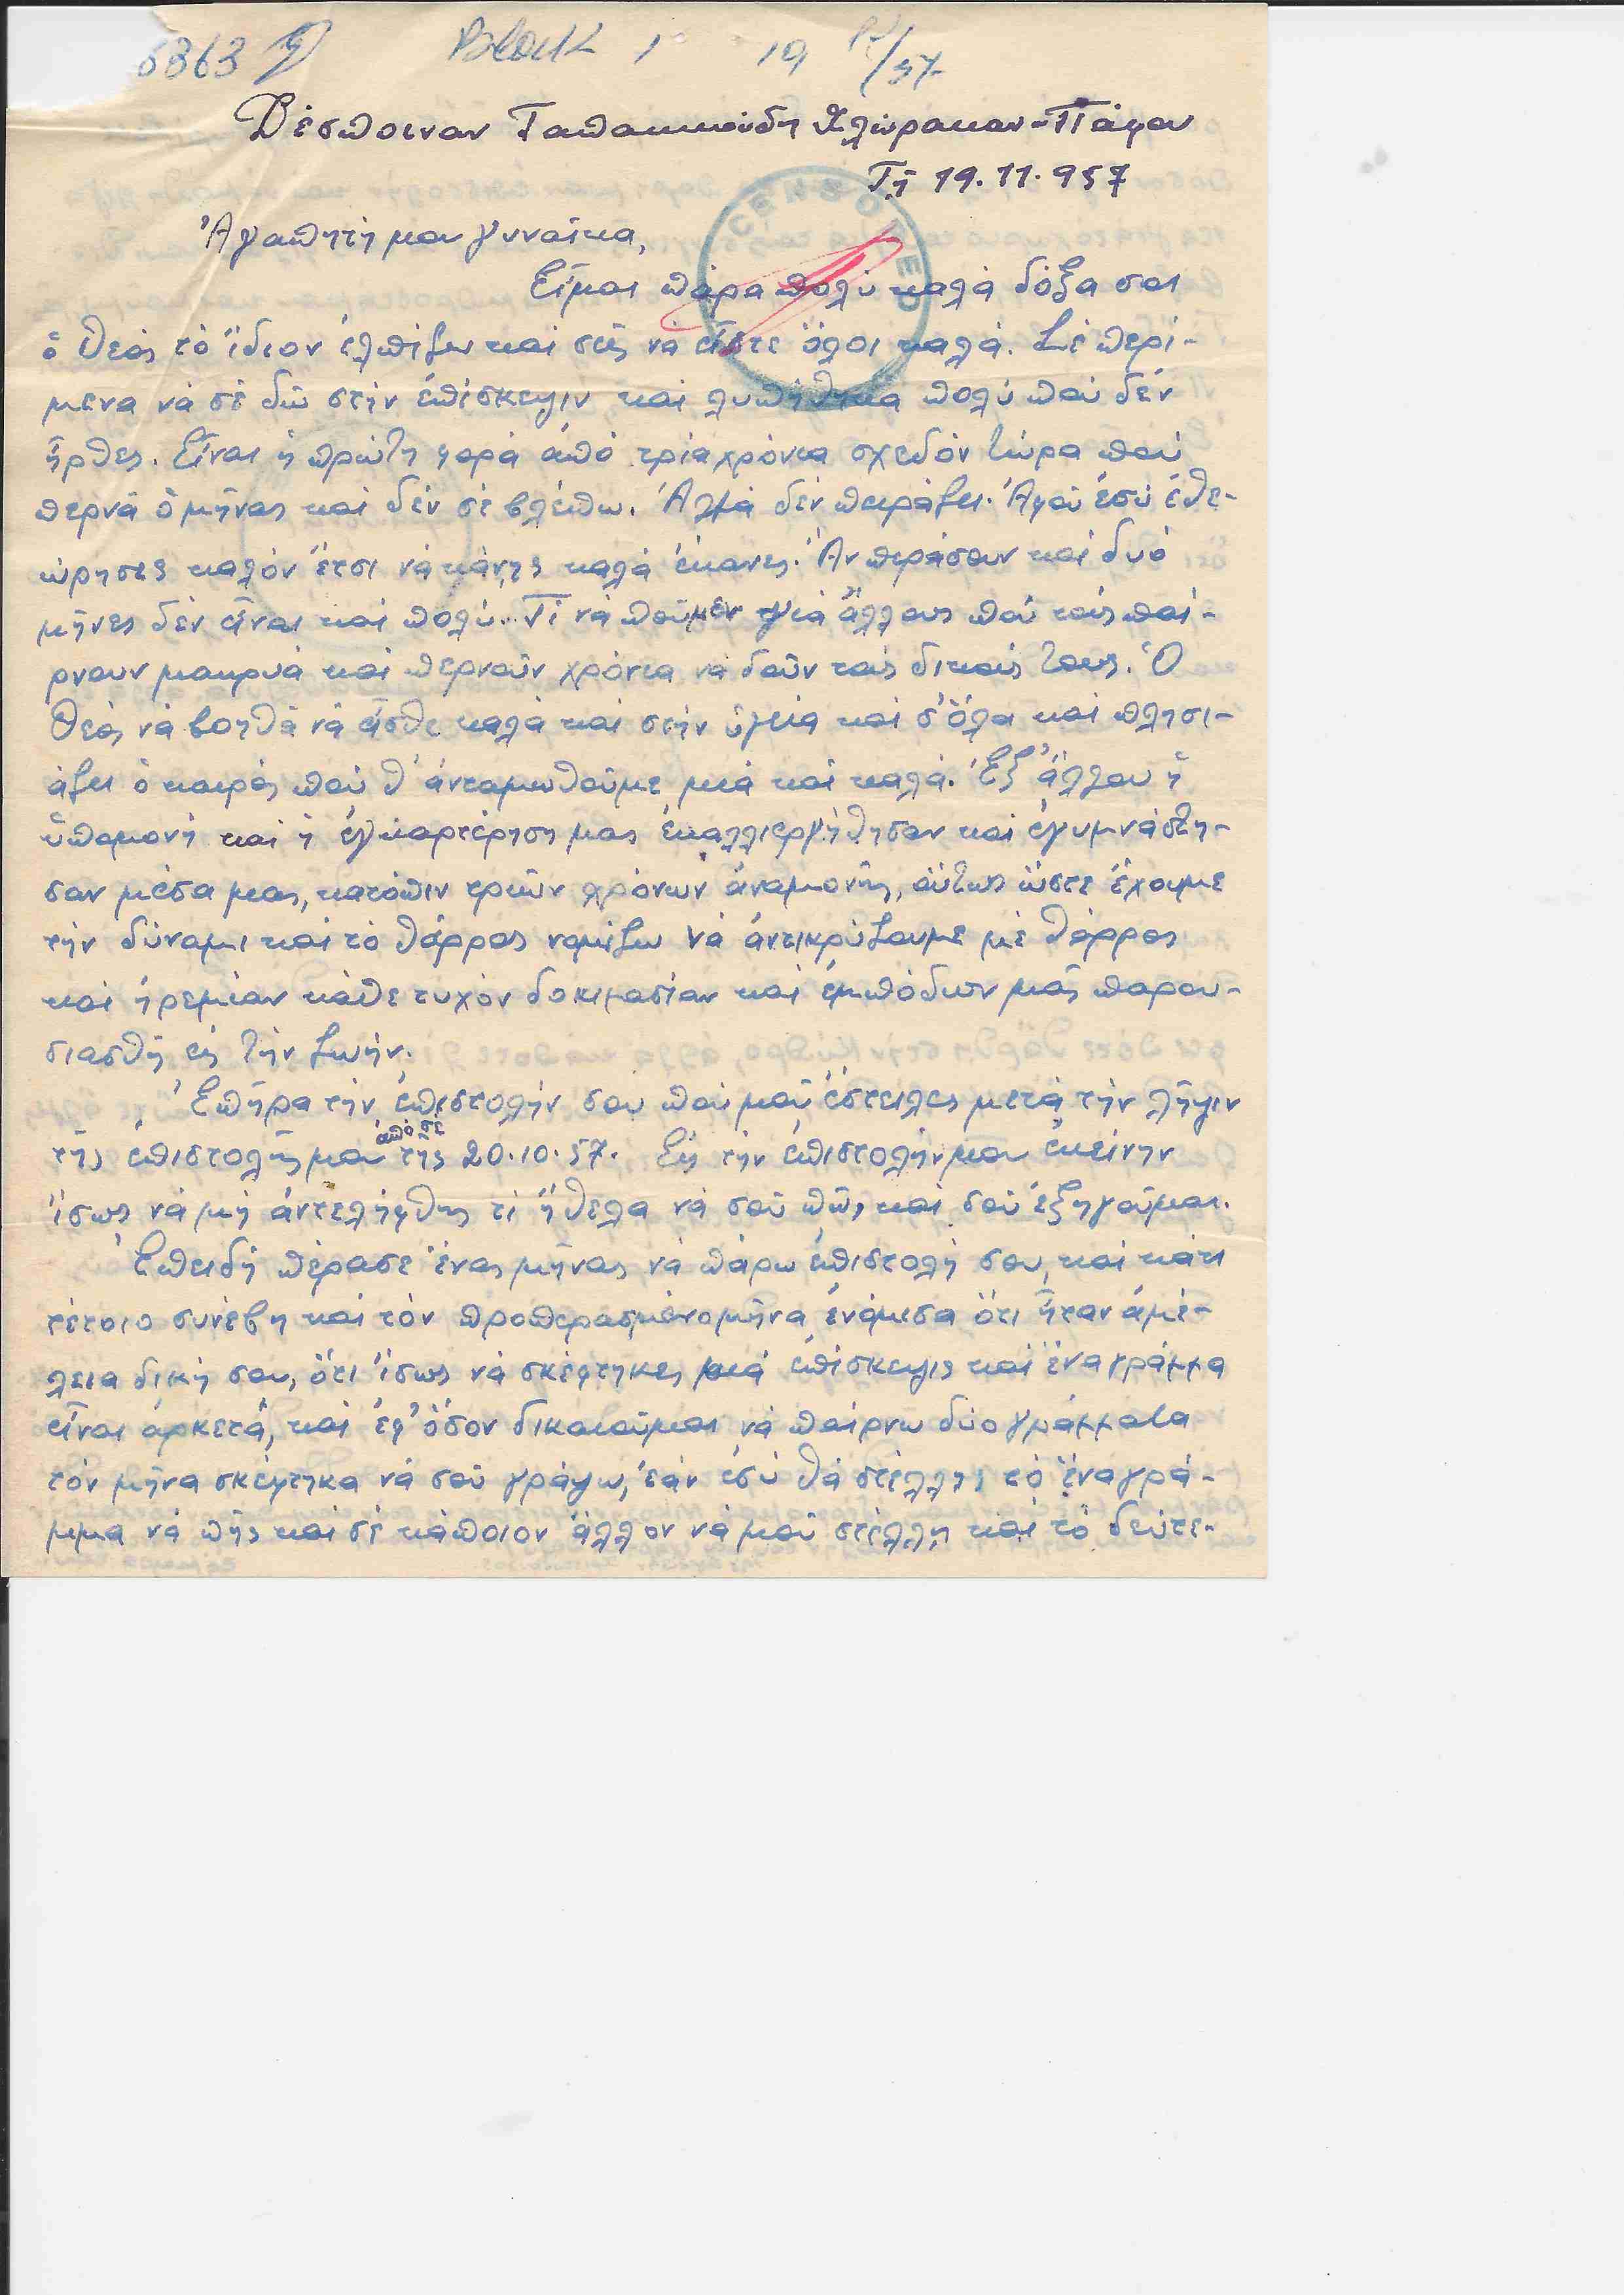 6363 Block 1 19/11/57
Δέσποιναν Ταπακκούδη Χλώρακαν - Πάφου
Τῇ 19.11.957
CENSORED
Ἀγαπητή μου γυναίκα,
Εἶμαι πάρα πολύ καλά δόξα σοι
ὁ Θεός τό ἴδιον ἐλπίζω καί σεῖς νά εἶστε ὅλοι καλά. Σέ περί-
μενα νά σέ δῶ στήν ἐπίσκεψιν καί λυπήθηκα πολύ πού δέν
ἦρθες. Εἶναι ἡ πρώτη φορά ἀπό τρία χρόνια σχεδόν τώρα πού
περνᾶ ὁ μῆνας καί δέν σέ βλέπω. Ἀλλά δέν πειράζει. Ἀφοῦ ἐσύ ἐθε-
ώρησες καλόν ἔτσι νά κάνῃς καλά ἔκανες. Ἄν περάσουν καί δυό
μῆνες δέν εἶναι καί πολύ. Τί νά ποῦμεν γιά ἄλλους πού τούς παί-
ρνουν μακρυά καί περνοῦν χρόνια νά δοῦν τούς δικούς τους. Ὁ
Θεός νά βοηθᾶ νά εἶσθε καλά καί στήν ὑγεία καί σ' ὅλα καί πλησι-
άζει ὁ καιρός πού θ' ἀνταμωθοῦμε μιά καί καλά. Ἐξ ἄλλου ἡ
ὑπομονή καί ἡ ἐγκαρτέρηση μας ἐκαλλιεργήθησαν καί ἐγυμνάστη-
σαν μέσα μας, κατόπιν τριῶν χρόνων ἀναμονῆς, οὕτως ὥστε ἔχουμε
τήν δύναμι καί τό θάρρος νομίζω νά ἀντικρύζουμε μέ θάρρος
καί ἠρεμίαν κάθε τυχόν δοκιμασίαν καί ἐμπόδιον μᾶς παρου-
σιασθῇ εἰς τήν ζωήν.
Ἐπῆρα τήν ἐπιστολήν σου πού μοῦ ἔστειλες μετά τήν λῆψιν
ἀπό σέ
τῆς ἐπιστολῆς μου τῆς 20.10.57. Εἰς τήν ἐπιστολήν μου ἐκείνην
ἴσως νά μή ἀντελήφθης τί ἤθελα νά σοῦ πῶ, καί σοῦ ἐξηγοῦμαι.
Ἐπειδή πέρασε ἕνας μῆνας νά πάρω ἐπιστολή σου, καί κάτι
τέτοιο συνέβη καί τόν προπερασμένο μῆνα ἐνόμισα ὅτι ἦταν ἀμέ-
λεια δική σου, ὅτι ἴσως νά σκέφτηκες μιά ἐπίσκεψις καί ἕνα γράμμα
εἶναι ἀρκετά, καί ἐφ' ὅσον δικαιοῦμαι νά παίρνω δύο γράμματα
τόν μῆνα σκέφτηκα νά σοῦ γράψω, ἐάν ἐσύ θά στέλλῃς τό ἕνα γρά-
μμα νά πῇς καί σέ κάποιον ἄλλον νά μοῦ στέλλῃ καί τό δεύτε-